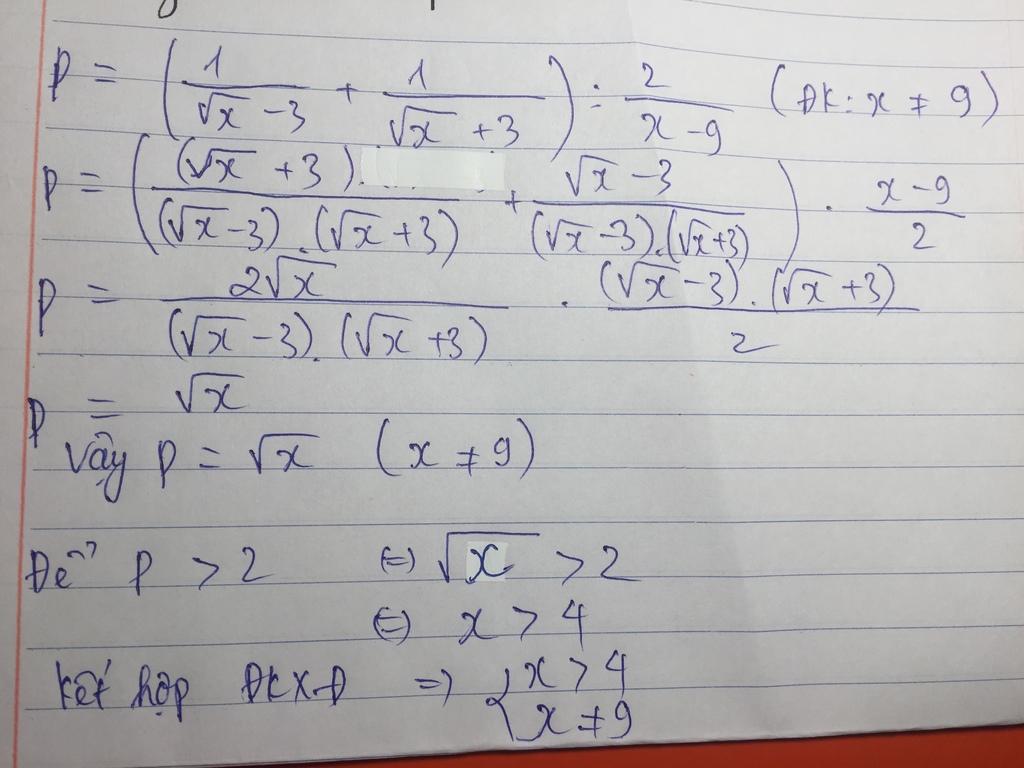 P = (1/(√x - 3) + 1/(√x + 3)) : 2/(x - 9) (ĐK: x ≠ 9)
P = ((√x + 3)/((√x - 3).(√x + 3)) + (√x - 3)/((√x - 3).(√x + 3))) . (x - 9)/2
P = 2√x/((√x - 3).(√x + 3)) . ((√x - 3).(√x + 3))/2
P = √x
Vậy P = √x (x ≠ 9)
Để P > 2 ⇔ √x > 2
⇔ x > 4
Kết hợp ĐKXĐ ⇒ { x > 4
x ≠ 9